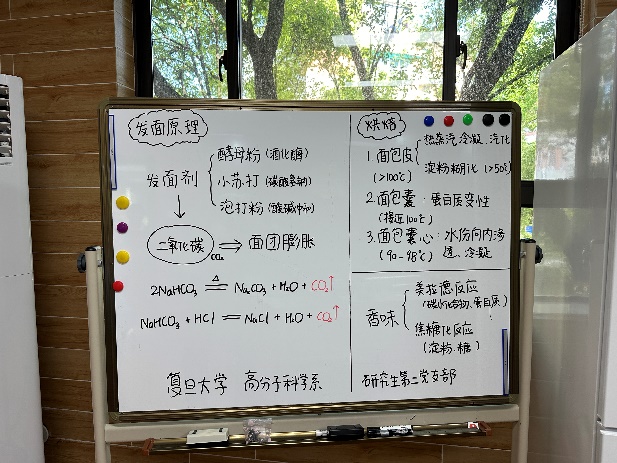 发面原理
发面剂
酵母粉（酒化酶）
小苏打（碳酸氢钠）
泡打粉（酸碱中和）
二氧化碳 CO₂ ⇒ 面团膨胀
2NaHCO₃ ≜ Na₂CO₃ + H₂O + CO₂↑
NaHCO₃ + HCl ═ NaCl + H₂O + CO₂↑
复旦大学 高分子科学系
烘焙
1.面包皮
(>100℃)
热蒸汽冷凝、汽化
淀粉糊化（>50℃）
2.面包囊：蛋白质变性
(接近100℃)
3.面包囊心：水份向内渗
(90-98℃) 透、冷凝
香味
美拉德反应
(碳水化合物、蛋白质)
焦糖化反应
(淀粉、糖)
研究生第二党支部